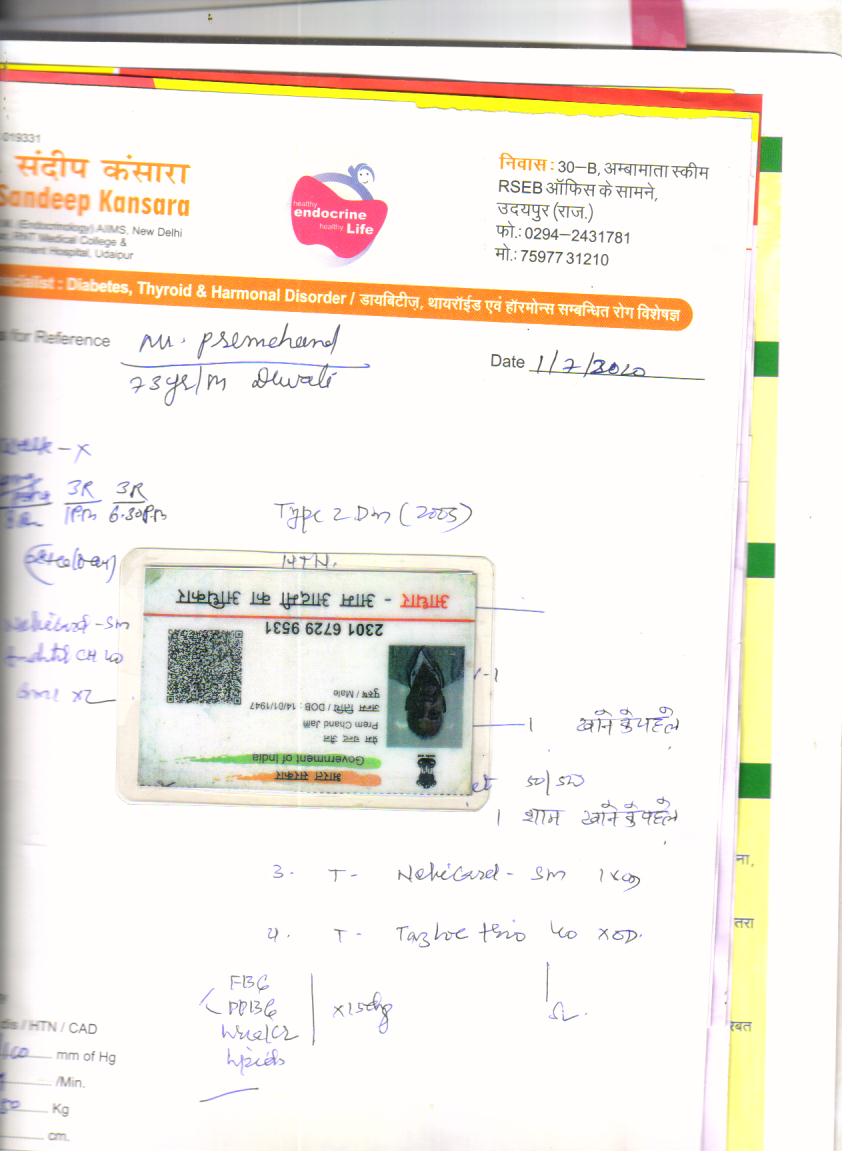 019331
संदीप कंसारा
Sandeep Kansara
(Endocrinology) AIIMS, New Delhi
RNT Medical College &
Hospital, Udaipur
healthy
endocrine
healthy Life
निवास : 30–B, अम्बामाता स्कीम
RSEB ऑफिस के सामने,
उदयपुर (राज.)
फो.: 0294–2431781
मो.: 75977 31210
: Diabetes, Thyroid & Harmonal Disorder / डायबिटीज़, थायरॉईड एवं हॉरमोन्स सम्बन्धित रोग विशेषज्ञ
for Reference
Mr. Premchand
Date 1/7/2020
73yr/m Diwali
3R 3R
1Pm 6.30Pm
Type 2 Dm (2003)
HTN.
Nebicard-Sm
भारत सरकार
Government of India
प्रेम चन्द जैन
Prem Chand Jain
जन्म तिथि / DOB : 14/01/1947
पुरुष / Male
2301 6729 9531
आधार - आम आदमी का अधिकार
1 खाने के पहले
50/500
1 शाम खाने के पहले
3. T- Nebicard-Sm 1xOD
4. T- Tazloc 40 xOD.
FBG
PPBG
x15day
Urea/Cr
Lipids
/ HTN / CAD
mm of Hg
/Min.
Kg
cm.
ना,
तरा
रबत